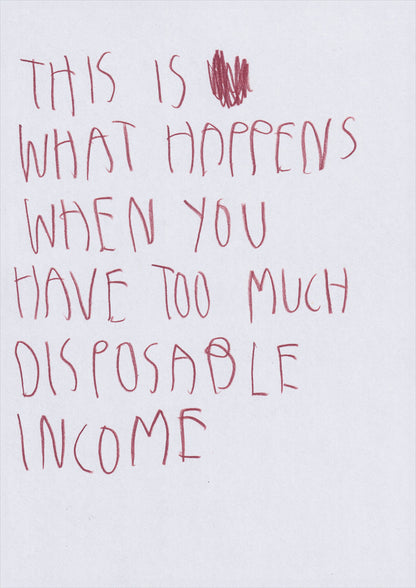 THIS IS
WHAT HAPPENS
WHEN YOU
HAVE TOO MUCH
DISPOSABLE
INCOME